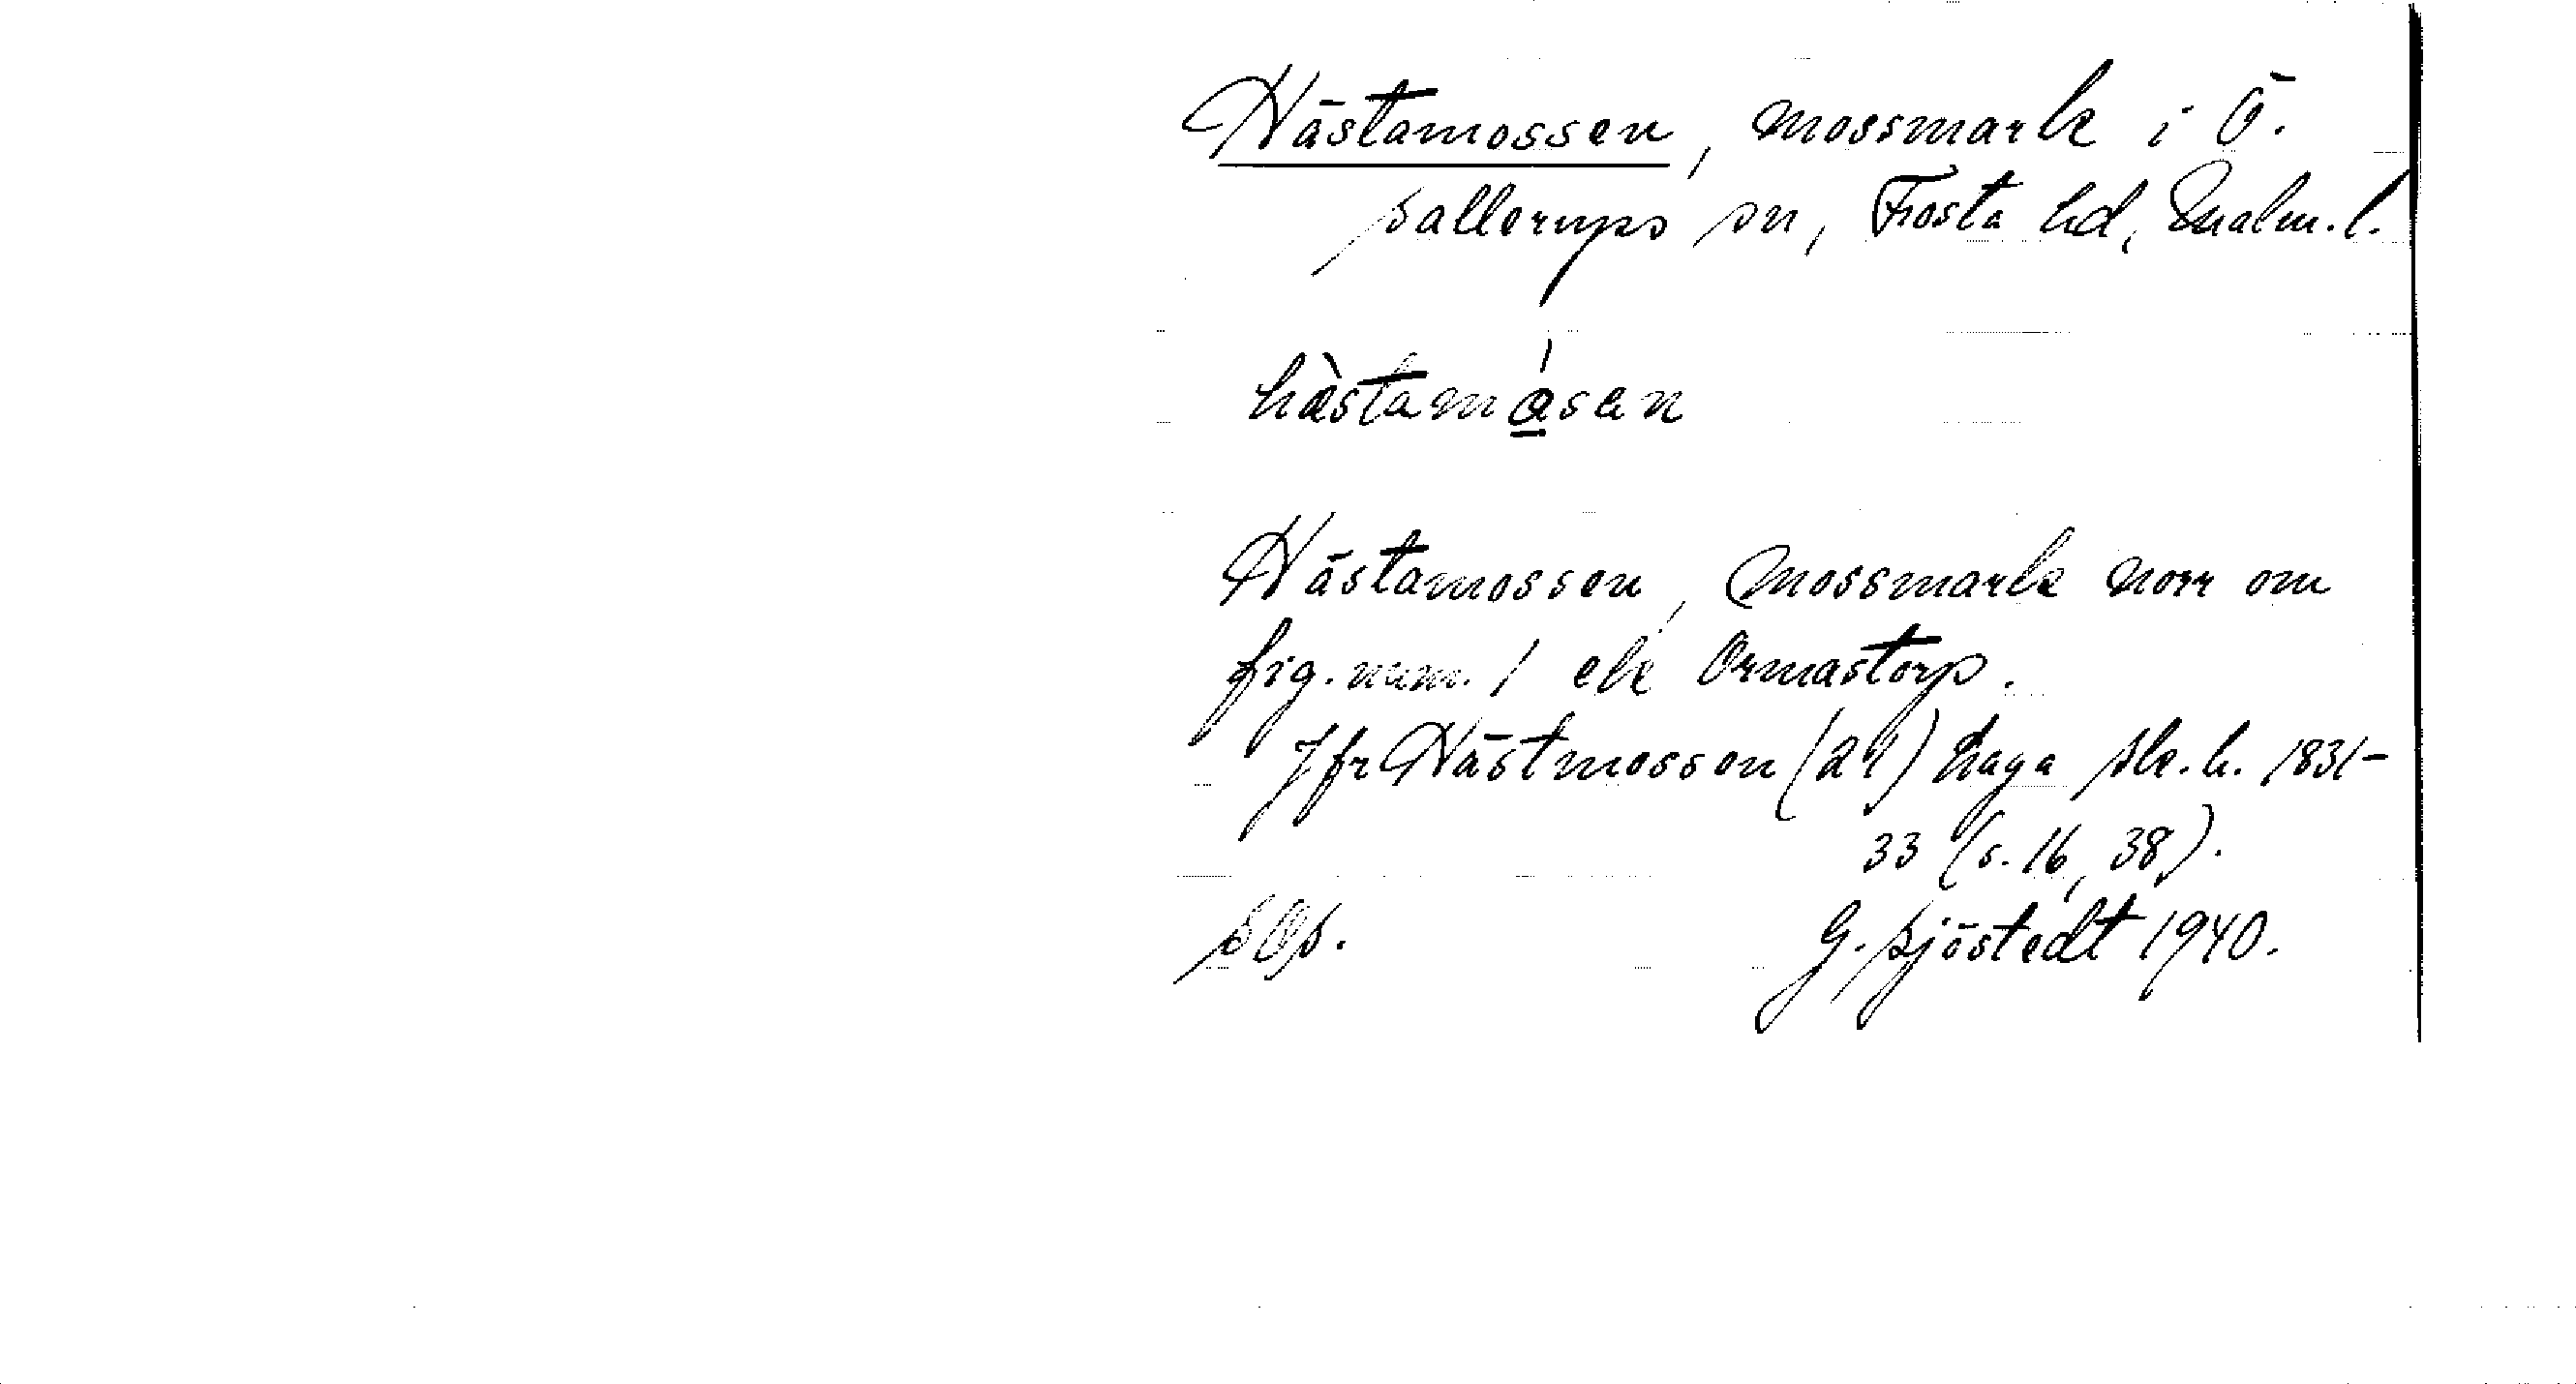 Hästamossen, mossmark i Ö.
Sallerups sn, Frosta hd, Malm. l.
hàstamåsan
Hästamossen, mossmark norr om
fig. num. 1 ek Ormastorp.
Jfr Hästmossen (21) Laga sk. h. 1831-
33 (s. 16, 38).
SOs. G. Sjöstedt 1940.